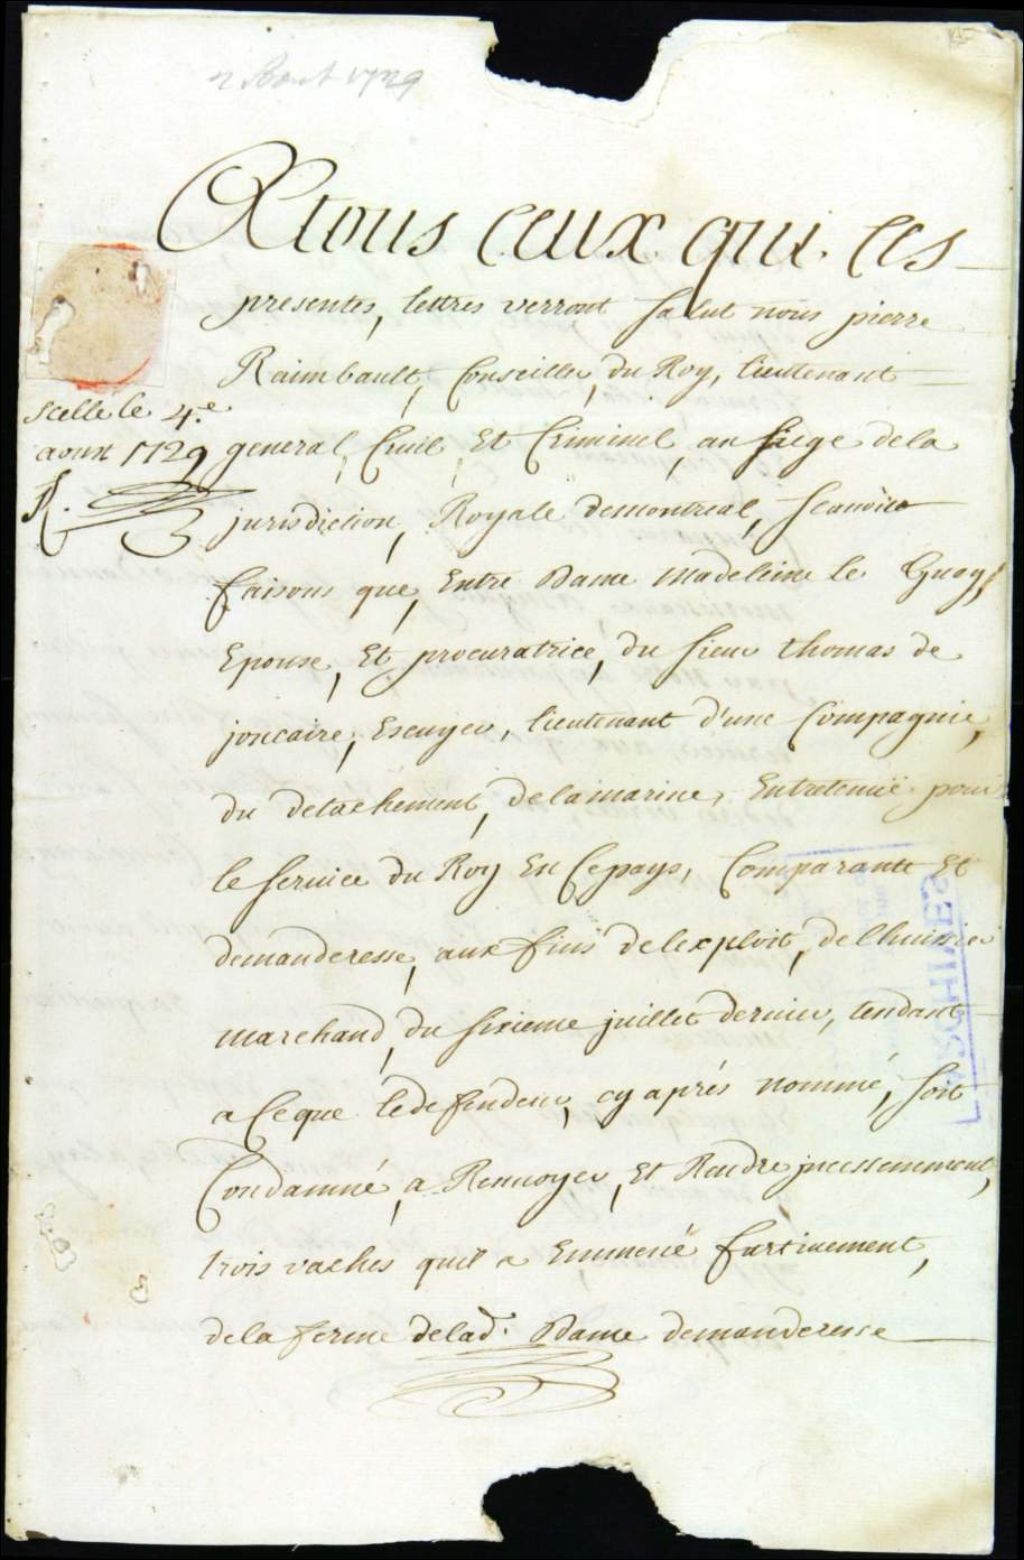 2 Aout 1729
A tous ceux qui ces
presentes, lettres verront salut nous pierre
Raimbault, Conseiller, du Roy, lieutenant
scelle le 4.e
aoust 1729
R.
general, Ciuil, Et Criminel, au siege dela
jurisdiction, Royale demontreal, scauoir
faisons que, Entre Dame Madeleine le Guay,
Epouse, Et procuratrice, du sieur thomas de
joncaire, Escuyer, lieutenant d'une Compagnie,
du detachement, delamarine, Entretenüe pour
le seruice du Roy En Cepays, Comparante Et
demanderesse, aux fins delexploit, delhuissier
marchand, du sixieme juillet dernier, tendant
a Ceque ledefendeur, cy aprés nommé, soit
Condamné, a Renuoyer, Et Rendre jncessemment,
trois vaches quil a Emmené furtiuement,
dela ferme delad. Dame demanderesse
ARCHIVES